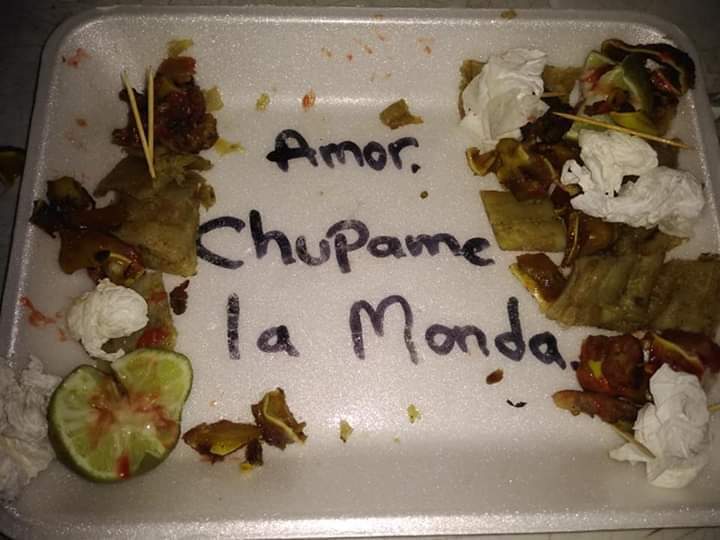 Amor.
Chupame
la Monda.